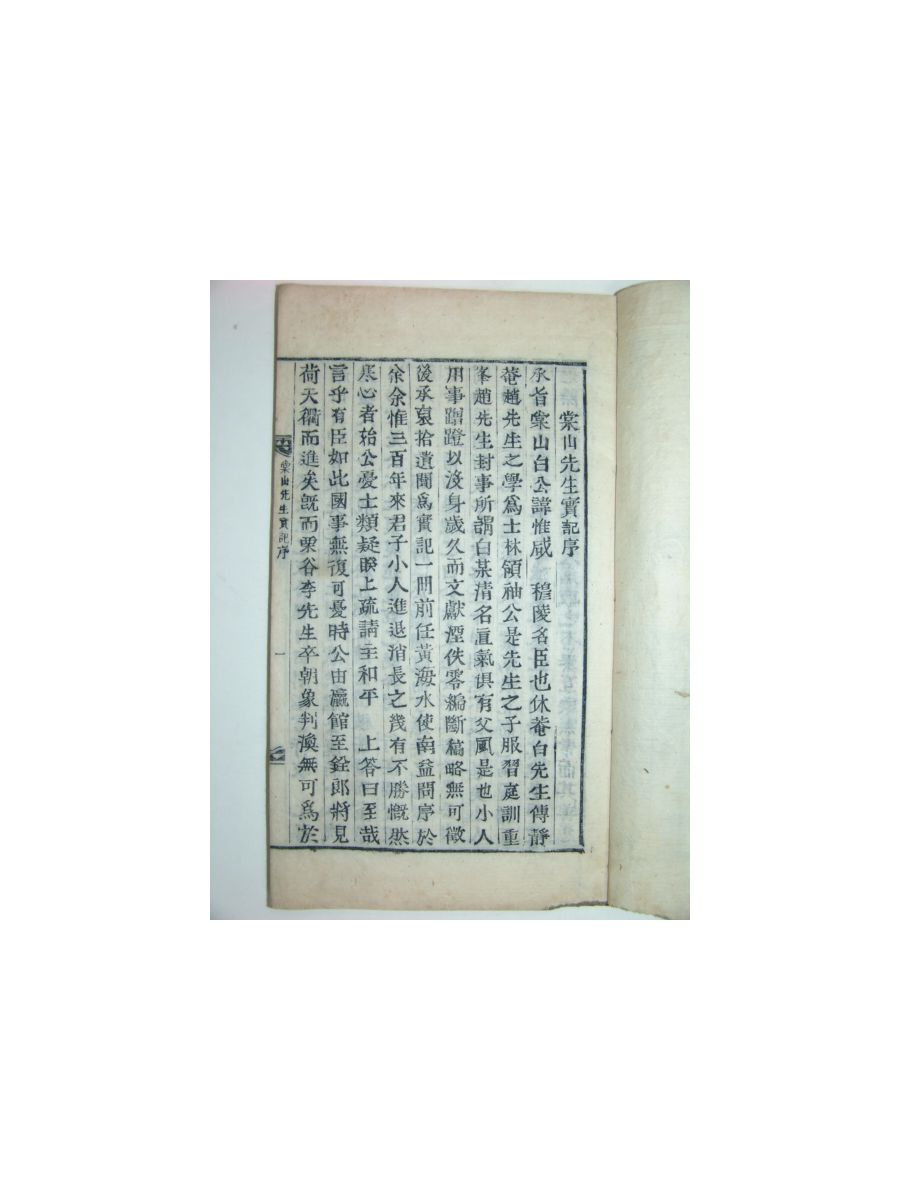 棠山先生實記序
承旨棠山白公諱惟咸 穆陵名臣也休菴白先生傳靜
菴趙先生之學爲士林領袖公是先生之子服習庭訓重
峯趙先生封事所謂白某淸名直氣俱有父風是也小人
用事蹭蹬以沒身歲久而文獻湮佚零編斷稿略無可徵
後承裒拾遺聞爲實記一開前任黃海水使南益問序於
余余惟三百年來君子小人進退消長之幾有不勝慨然
寒心者始公憂士類疑睽上疏請主和平 上答曰至哉
言乎有臣如此國事無復可憂時公由瀛館至銓郞將見
荷天衢而進矣旣而栗谷李先生卒朝象判渙無可爲於
棠山先生實記序
一